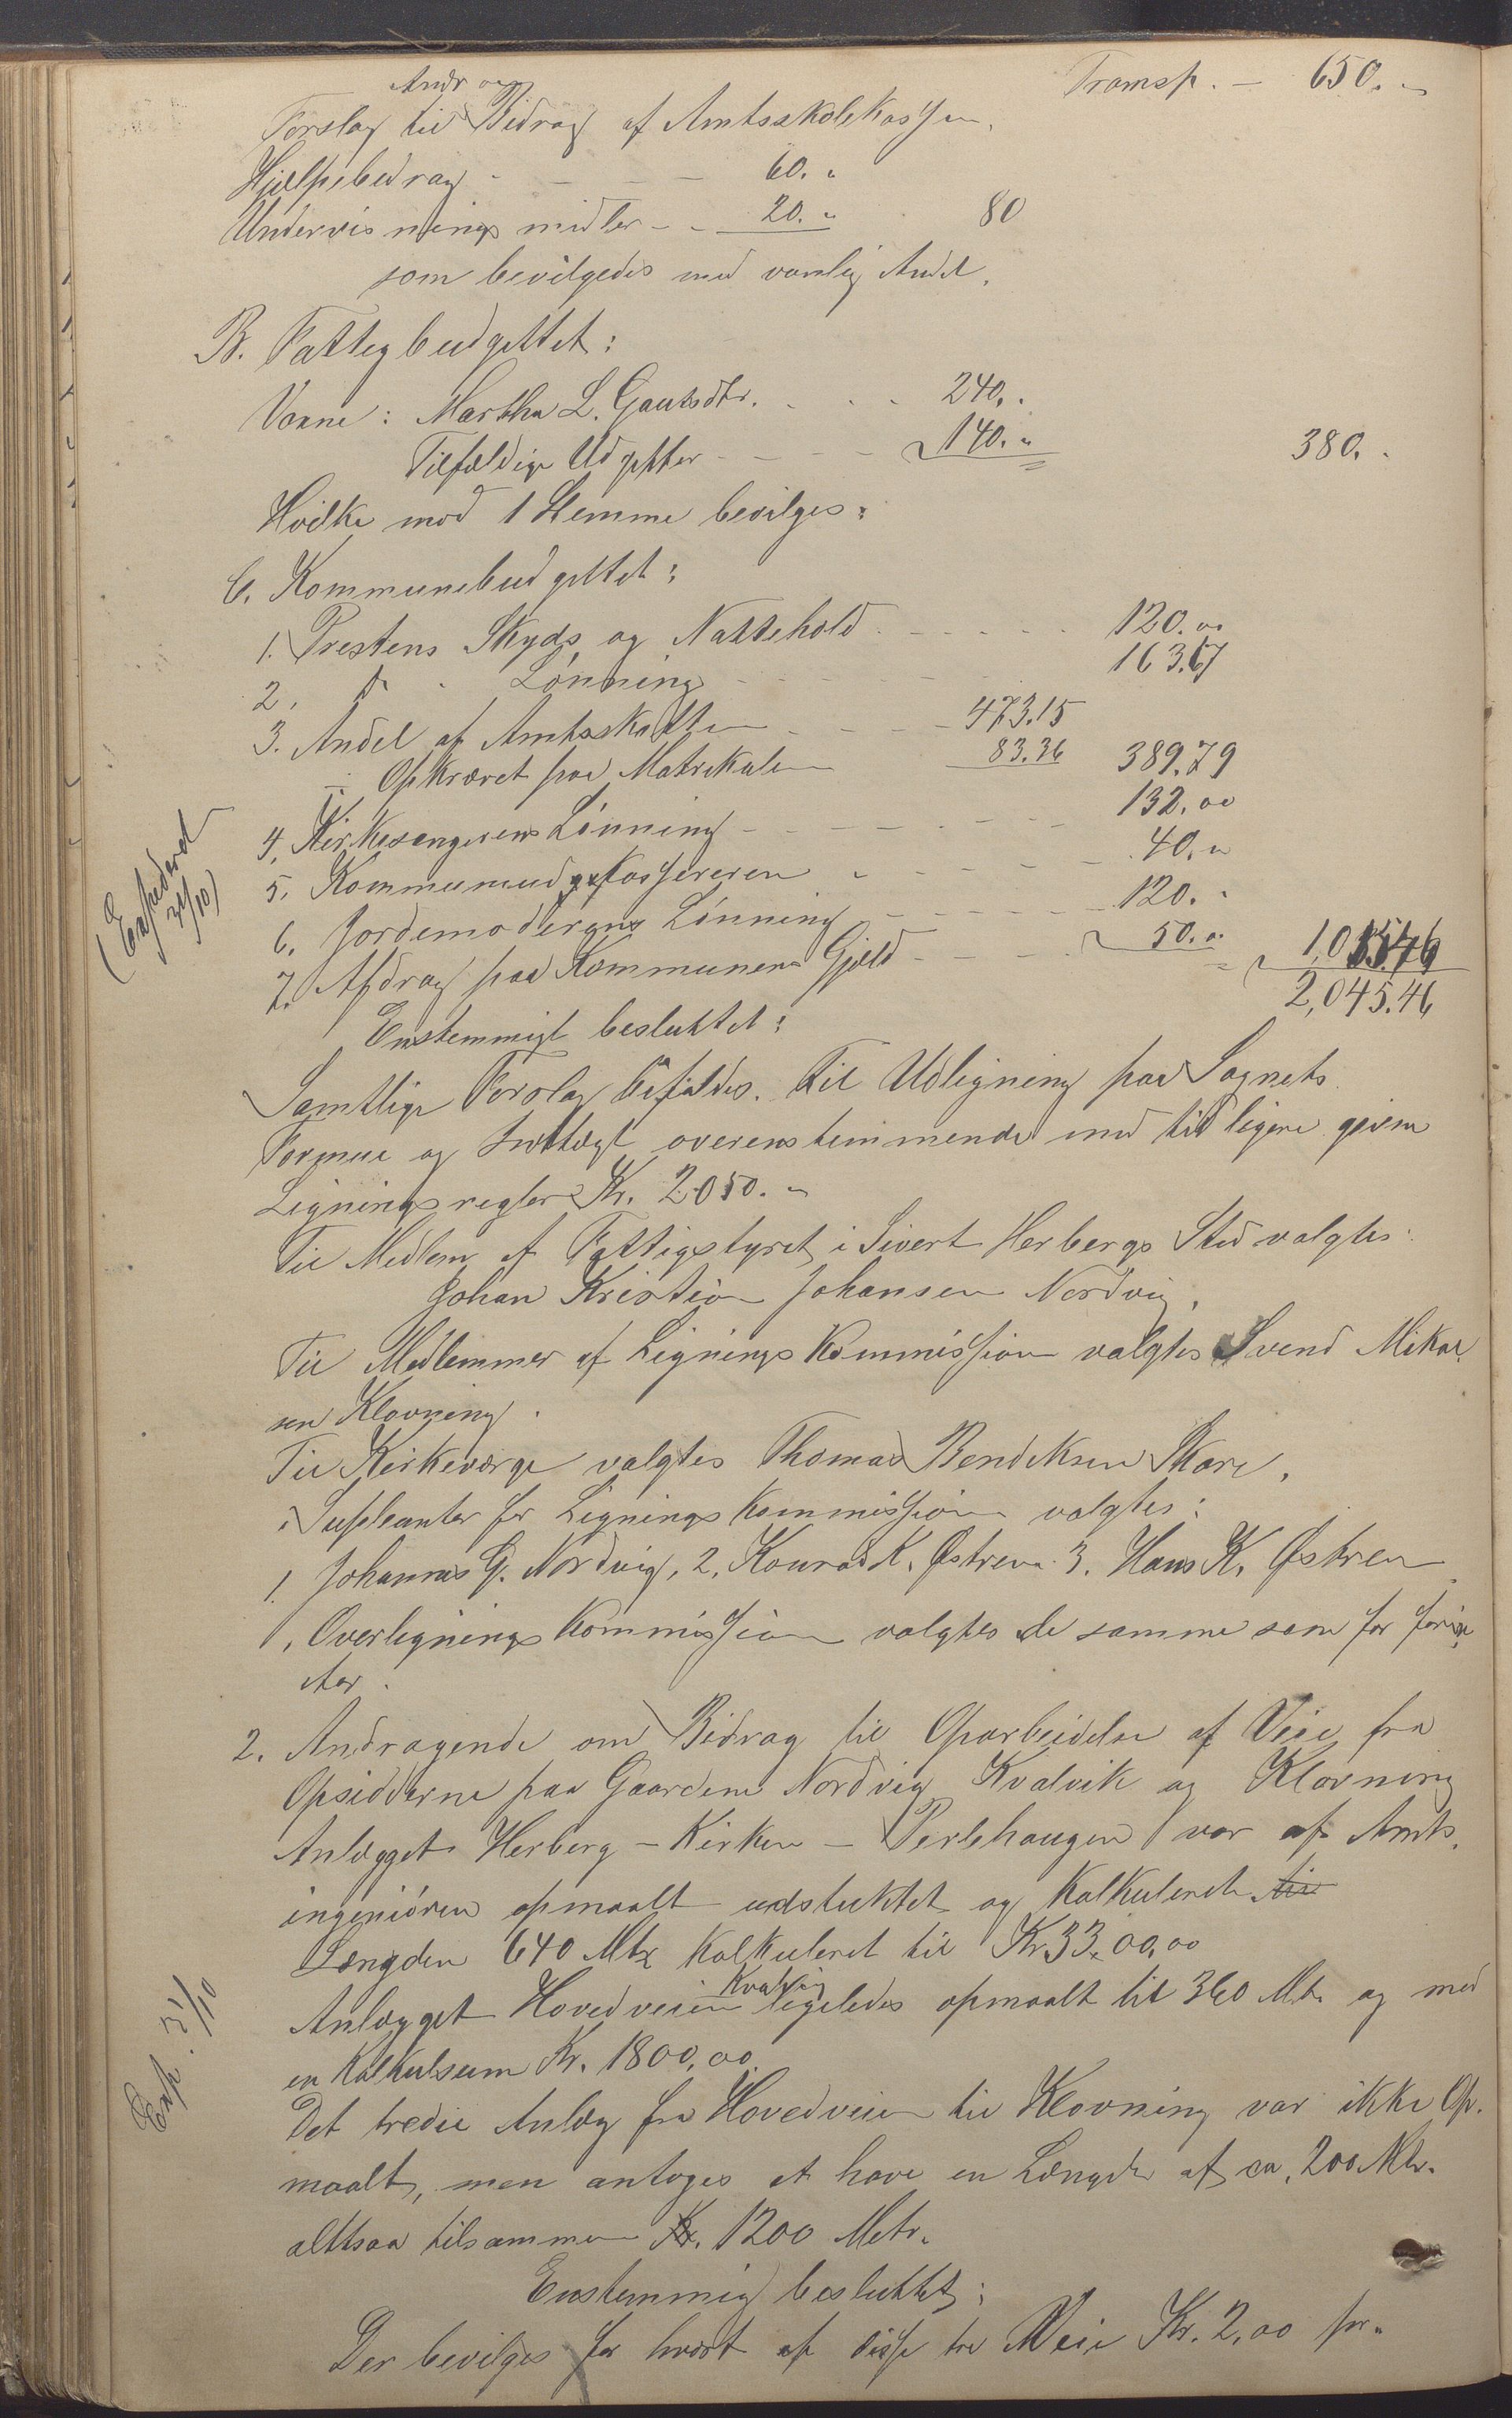 Transp. — 650. "
Andrag
Forslag til Bidrag af Amtsskolekassen.
Hjælpebidrag - — — — 60. "
Undervisningsmidler - - 20. " 80
som bevilgedes med vanlig Andel.
B. Fattigbudgettet:
Voxne: Martha L. Gautsdtr. - - - 240. "
Tilfældige Udgifter - - - - 140. " 380. "
Hvilke mod 1 Stemme bevilges.
C. Kommunebudgettet:
1. Prestens Skyds og Nattehold - - - - - 120.00
2. do - Lønning - - - - - 163.67
3. Andel af Amtsskatten - - - 473.15
÷ Opkrævet paa Matrikulen 83.36 389.79
4. Kirkesangerens Lønning - - - - - - 132.00
5. Kommune Kassereren " - - - - 40. "
6. Jordemoderens Lønning - - - - - - 120. "
7. Afdrag paa Kommunens Gjæld - - - - 50. " 1,015.46
2,045.46
(Expederet
31/10)
Enstemmigt besluttet:
Samtlige Forslag bifaldes. Til Udligning paa Sognets
Formue og Indtægt overensstemmende med tidligere givne
Ligningsregler Kr. 2050. "
Til Medlem af Fattigstyret i Sivert Herbergs Sted valgtes:
Johan Kristian Johansen Nordvig.
Til Medlemmer af Ligningskommissionen valgtes Svend Mikal
sen Klovning.
Til Kirkeværge valgtes Thomas Bendiksen Skare.
i Supleanter for Ligningskommissionen valgtes:
1. Johannes G. Nordvig, 2. Konrad K. Østrem. 3. Hans K. Østrem
i Overligningskommissionen valgtes de samme som for forige
Aar.
2. Andragende om Bidrag til Oparbeidelse af Veie fra
Opsidderne paa Gaardene Nordvig Kvalvik og Klovning
Anlægget Herberg - Kirken - Perlehaugen var af Amts
ingeniøren opmaalt udstukket og kalkuleret til
Længden 640 Mtr kalkuleret til Kr. 33.00,00
Kvalvig
Anlægget Hovedveien ligeledes opmaalt til 360 Mtr og med
en Kalkulsum Kr. 1800,00.
Exp. 31/10
Det tredie Anlæg fra Hovedveien til Klovning var ikke Op-
maalt, men antoges at have en Længde af ca. 200 Mtr.
altsaa tilsammen Kr. 1200 Metr.
Enstemmig besluttet:
Der bevilges for hvert af disse tre Veie Kr. 2,00 pr.